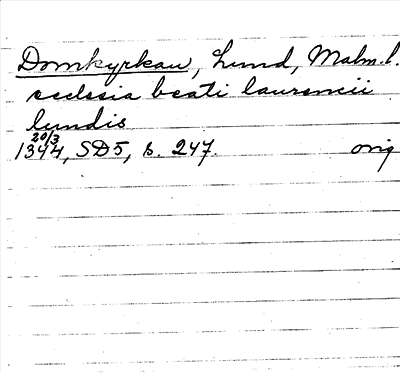 Domkyrkan, Lund, Malm.l.
ecclesia beati laurencii
lundis
20/3
1344, SD5, s. 247. orig